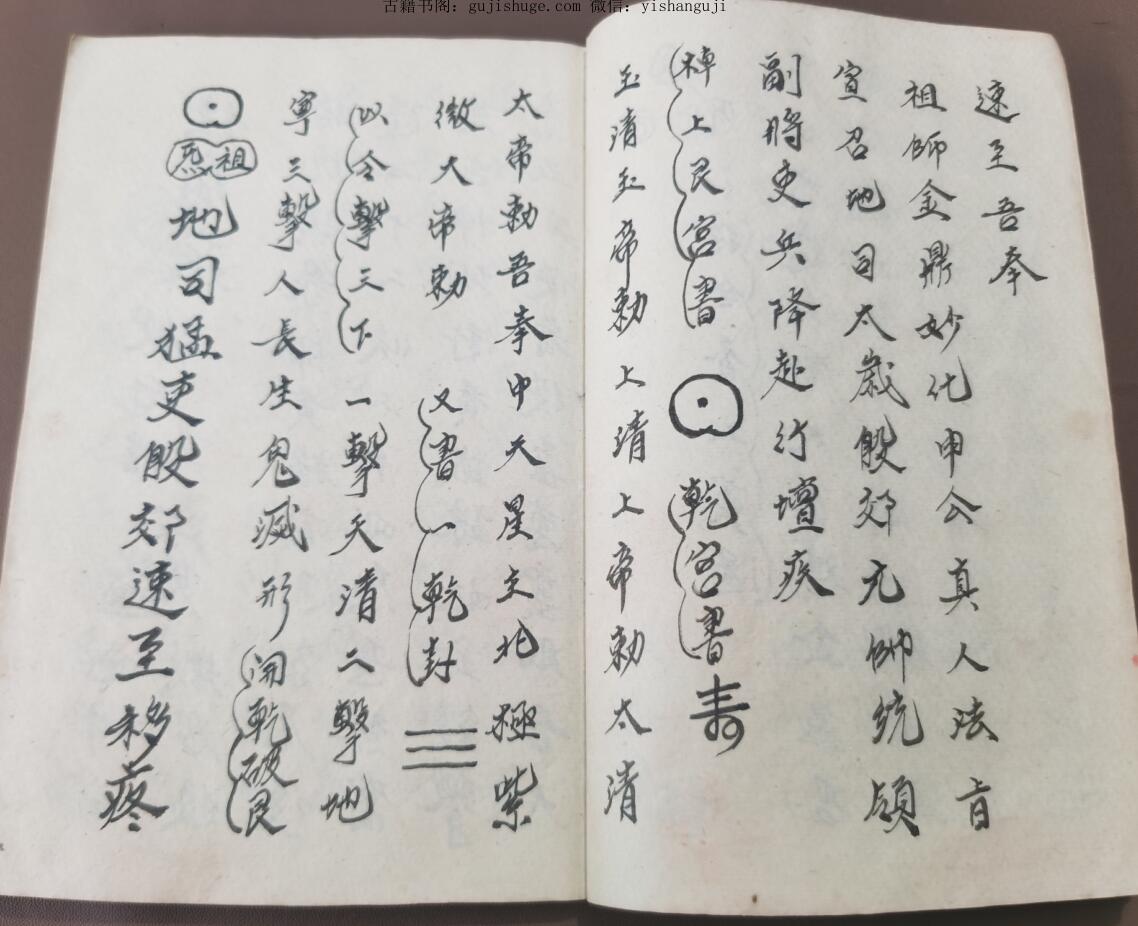 古籍书阁：gujishuge.com 微信：yishanguji
速至吾奉
祖師金鼎妙化申公真人法旨
宣召地司太歲殷郊元帥統領
副將吏兵降赴行壇疾
上艮宮書 乾宮書
玉清玉帝勅上清上帝勅太清
太帝勅吾奉中天星主北極紫
微大帝勅 又書一乾封 ☰
以令擊三下一擊天清二擊地
寧三擊人長生鬼滅形開乾破艮
祖炁
地司猛吏殷郊速至移疼